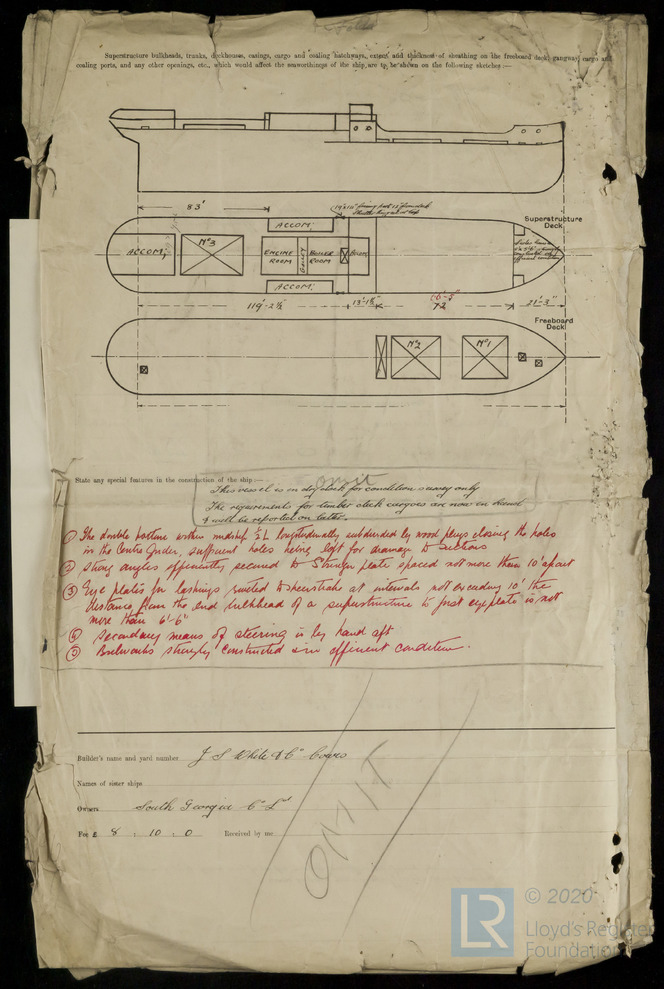 Superstructure bulkheads, trunks, deckhouses, casings, cargo and coaling hatchways, extent and thickness of sheathing on the freeboard deck, gangway, cargo and
coaling ports, and any other openings, etc., which would affect the seaworthiness of the ship, are to be shown on the following sketches :—
83'
ACCOM;
Superstructure
Deck
ACCOM;
Nº3
ENGINE
ROOM
BOILER
ROOM
ACCOM;
119'-2½"
13'-1½"
66'-5"
72
21'-3"
Freeboard
Deck
Nº2
Nº1
State any special features in the construction of the ship :—
omit
This vessel is in dry dock for condition survey only
The requirements for timber deck cargoes are now in hand
& will be reported on later.
① The double bottom within midship ½ L longitudinally subdivided by wood plugs closing the holes
in the Centre Girder, sufficient holes being left for drainage to suctions
② Strong angles efficiently secured to Stringer plate spaced not more than 10' apart
③ Eye plates for lashings riveted to sheerstrake at intervals not exceeding 10' the
distance from the end bulkhead of a superstructure to first eyeplate is not
more than 6'-6"
④ Secondary means of steering is by hand aft
⑤ Bulwarks strongly constructed & in efficient condition.
Builder's name and yard number J S White & Cº Cowes
Names of sister ships
Owners South Georgia Cº Ltd
Fee £ 8 : 10 : 0 Received by me
OMIT
LR
© 2020
Lloyd's Register
Foundation